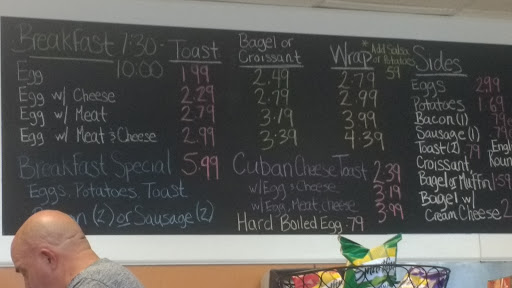 Breakfast 7:30-10:00 Toast Bagel or Croissant Wrap * Add Salsa or Potatoes .59 Sides
Egg 1.99 2.49 2.79
Egg w/ Cheese 2.29 2.79 2.99
Egg w/ Meat 2.79 3.19 3.99
Egg w/ Meat & Cheese 2.99 3.39 4.39
Breakfast Special 5.99
Eggs, Potatoes, Toast
(2) or Sausage (2)
Cuban Cheese Toast 2.39
w/ Egg & Cheese 3.19
w/ Egg, Meat, Cheese 3.99
Hard Boiled Egg .79
Eggs 2.99
Potatoes 1.69
Bacon (1) .79
Sausage (1) .79
Toast (2) .79
Croissant,
Bagel or Muffin 1.59
Bagel w/
Cream Cheese 2